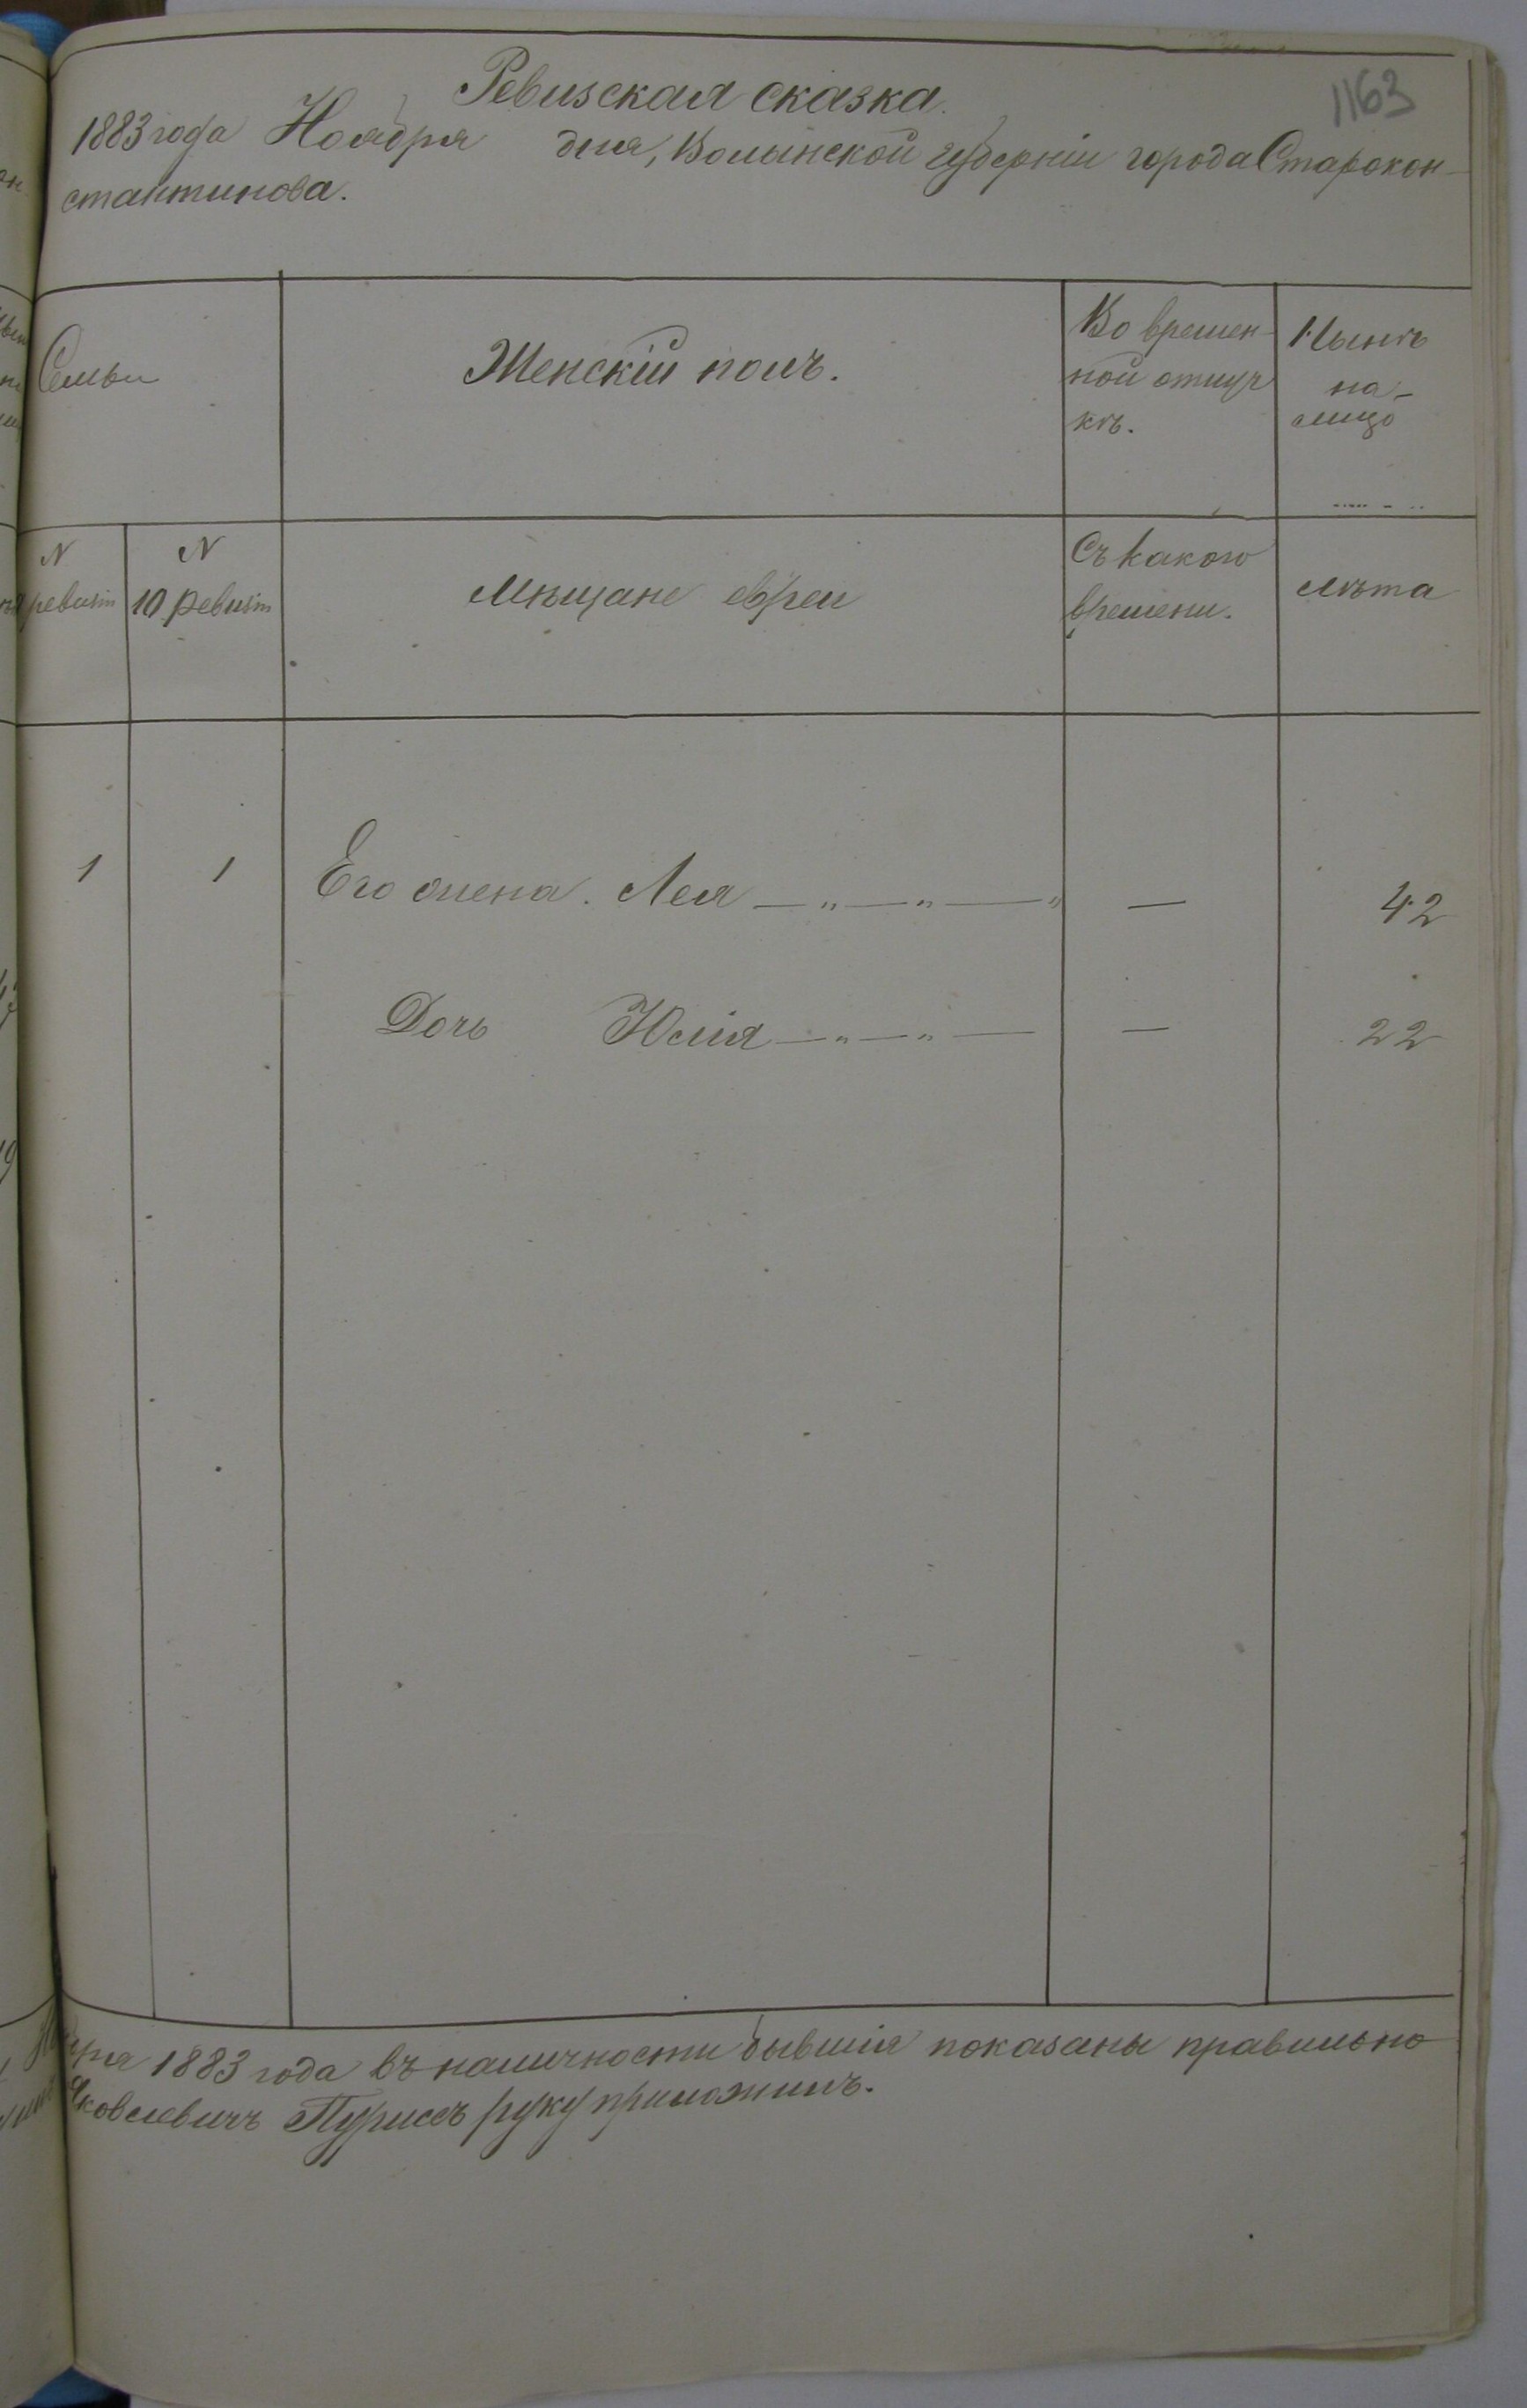 1163
Ревизская сказка.
1883 года Ноября дня, Волынской губерніи города Старокон-
стантинова.
Семьи
Женскій полъ.
Во времен-
ной отлуч
кѣ.
Нынѣ
на-
лицо
N
ревизіи
N
10 ревизіи
Мѣщане евреи
Съ какого
времени.
лѣта
1 1 Его жена. Лея —„—„—„ — 42
Дочь Юлія —„—„— — 22
бря 1883 года въ наличности бывшія показаны правильно
Яковлевичъ Пуриссъ руку приложилъ.